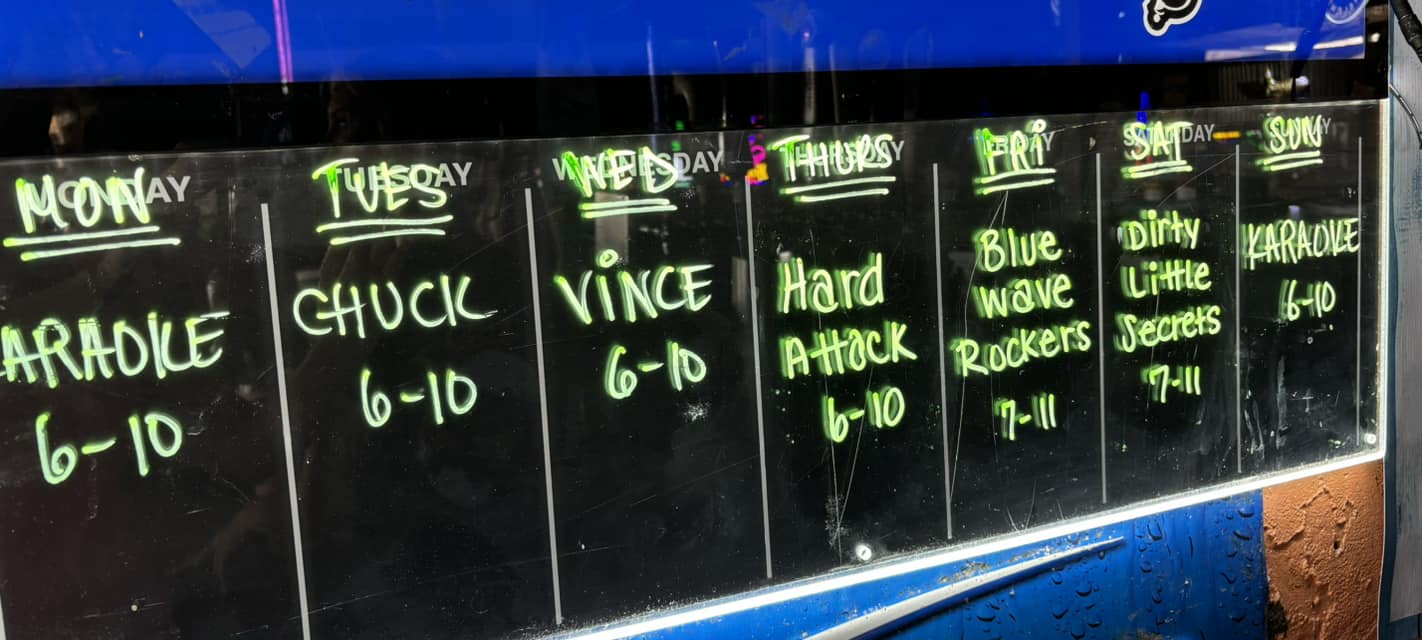 MONDAY
MON
ARAOKE
6-10
TUESDAY
TUES
CHUCK
6-10
WEDNESDAY
WED
ViNCE
6-10
THURSDAY
THURS
Hard
Attack
6-10
FRIDAY
FRi
Blue
Wave
Rockers
7-11
SATURDAY
SAT
Dirty
Little
Secrets
7-11
SUNDAY
SUN
KARAOKE
6-10